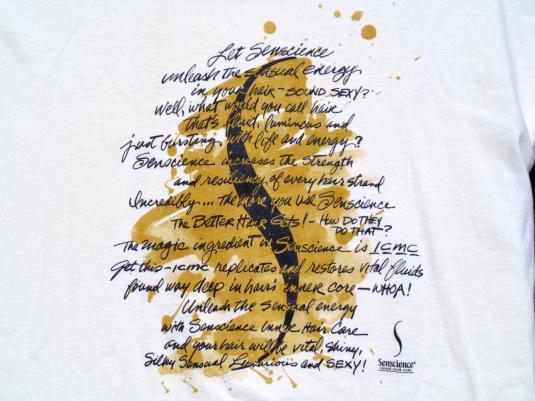 Let Senscience
unleash the sensual energy
in your hair - SOUND SEXY?
Well, what would you call hair
that's fluid, luminous and
just bursting with life and energy?
Senscience increases the strength
and resiliency of every hair strand
Incredibly... The more you use Senscience
The Better Hair Gets! - HOW DO THEY
DO THAT?
The magic ingredient in Senscience is ICMC
Get this - ICMC replicates and restores vital fluids
found way deep in hair's inner core - WHOA!
Unleash the sensual energy
with Senscience Inner Hair Care
and your hair will be vital, shiny,
Silky Sensual Luxurious and SEXY!
Senscience
INNER HAIR CARE